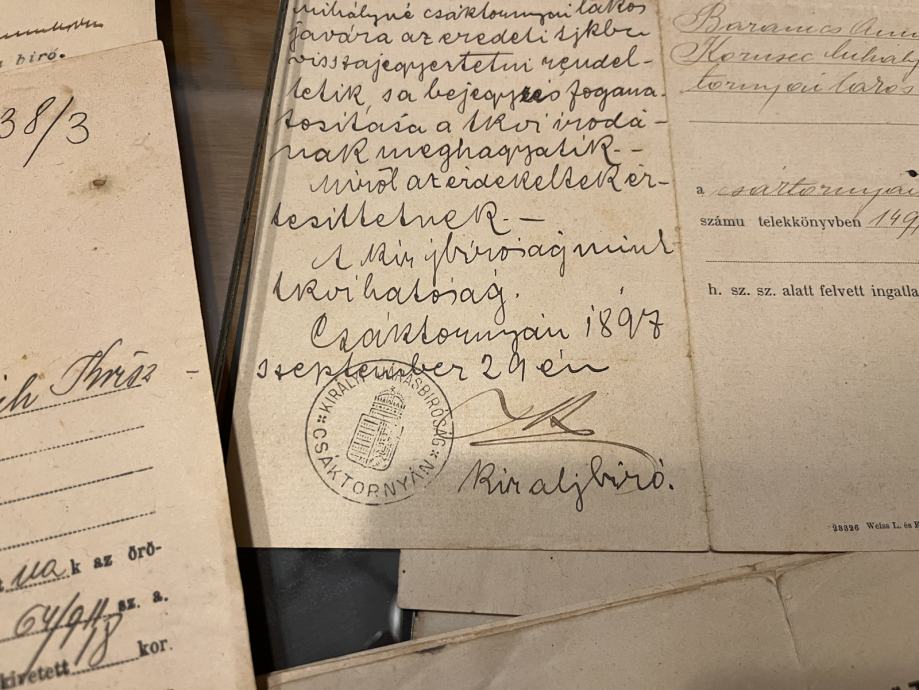 biró.
38/3
Krisz
k az örö-
64/911/18 sz. a.
kor.
mihályné csáktornyai lakos
javára az eredeti tjkbe
visszajegyeztetni rendel-
tetik, s a bejegyzés fogana-
tosítása a tkvi irodá-
nak meghagyatik.-
Miről az érdekeltek ér-
tesittetnek.-
A kir jbiróság mint
tkvi hatóság.
Csáktornyán 1897
szeptember 29 én
KIRÁLYI JÁRÁSBIRÓSÁG
CSÁKTORNYÁN
Kir aljbiró.
Mihály
a csáktornyai
számu telekkönyvben 149
h. sz. sz. alatt felvett ingatla
28326 Weiss L. és F